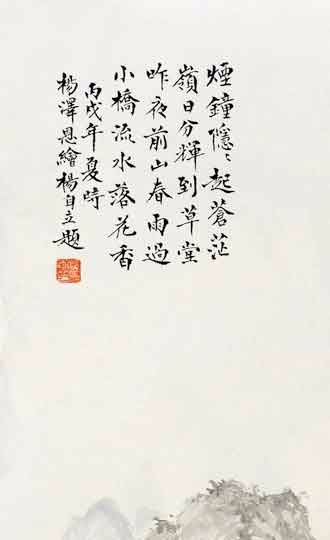 煙鐘隱〻起蒼茫
嶺日分輝到草堂
昨夜前山春雨過
小橋流水落花香
丙戌年夏時
楊澤恩繪楊自立題